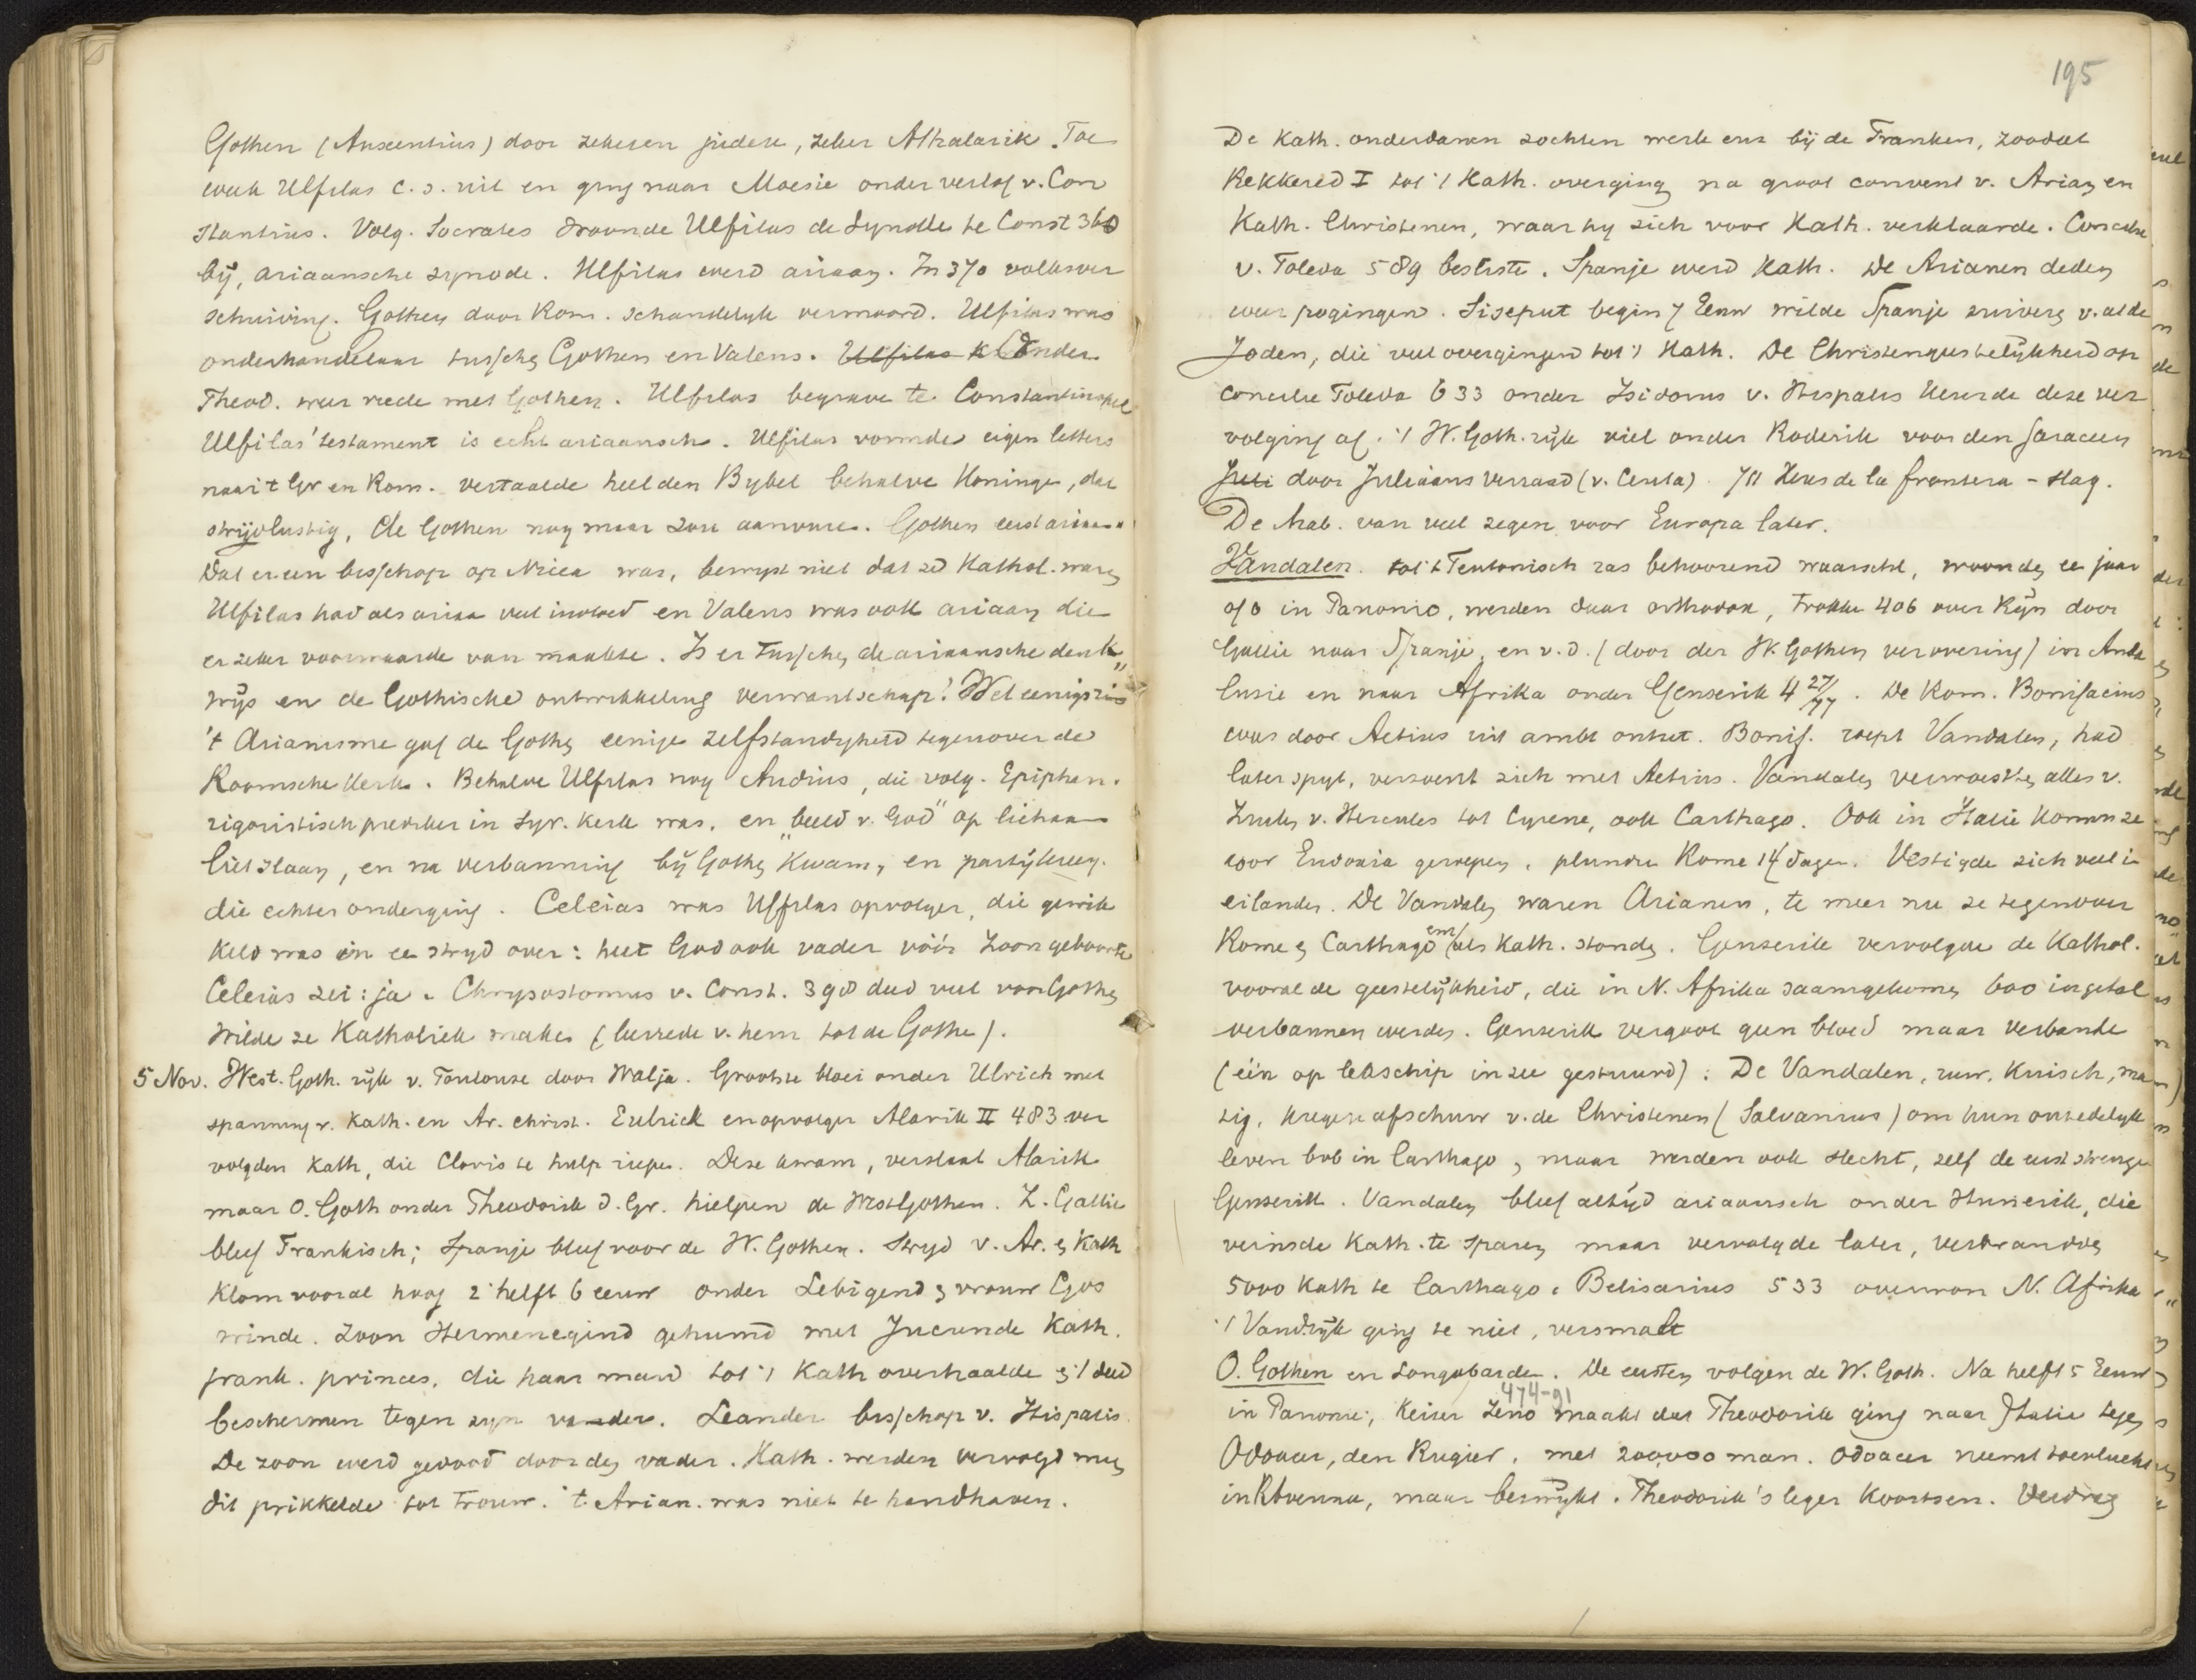 Gothen (Auxentius) door zekeren judex, zeker Athalarik. Toe
week Ulfilas c.s. uit en ging naar Moesie onder verlof v. Con
stantius. Volg. Socrates woonde Ulfilas de Synode te Const 360
bij, ariaansche synode. Ulfilas werd ariaan. In 370 volksver
schuiving. Gothen door Rom. schandelijk vermoord. Ulfilas was
onderhandelaar tusschen Gothen en Valens. Ulfilas Onder
Theod. weer vrede met Gothen. Ulfilas begrave te Constantinopel
Ulfilas' testament is echt ariaansch. Ulfilas vormde eigen letters
naar 't Gr en Rom. vertaalde heel den Bybel behalve Koninge, dat
strijdlustig, de Gothen nog maar zou aanvure. Gothen eerst ariaa
Dat er een bisschop op Nicea was, bewyst niet dat ze Kathol. ware
Ulfilas had als ariaa veel invloed en Valens was ook ariaan die
er zeker voorwaarde van maakte. Is er tusschen de ariaansche denk
wijs en de Gothische ontwikkeling verwantschap? Wel eenigszins
't Arianisme gaf de Gothen eenige zelfstandigheid tegenover de
Roomsche kerk. Behalve Ulfilas nog Audius, die volg. Epiphan.
rigoristisch prediker in Syr. kerk was, en "beeld v. God" op lichaam
liet slaan, en na verbanning bij Gothen kwam, en partij kreeg.
die echter onderging. Celeias was Ulfilas opvolger, die gewik
keld was in ee stryd over: heet God ook vader vóór Zoon geboorte
Celeias zei: ja. Chrysostomus v. Const. 398 deed veel voor Gothen
Wilde ze Katholiek make (leerrede v. hem tot de Gothe).
5 Nov. West. Goth. rijk v. Toulouse door Walja. Grootste bloei onder Ulrich met
spanning v. Kath. en Ar. christ. Eulrick en opvolger Alarik II 483 ver
volgden Kath, die Clovis te hulp riepe. Deze kwam, verslaat Alarik
maar O. Goth onder Theodorik d. Gr. hielpen de WestGothen. Z. Gallie
bleef Frankisch; Spanje bleef voor de W. Gothen. Stryd v. Ar. en Kath
klom vooral hoog 2e helft 6 eeuw onder Lebigend en vrouw Gos
winde. Zoon Hermenegind gehuwd met Jucunde Kath.
frank. princes, die haar man tot 't Kath overhaalde en 't deed
beschermen tegen zyn vader. Leander bisschop v. Hispalis.
De zoon werd gedood door den vader. Kath. werden vervolgd maar
dit prikkelde tot trouw. 't Arian. was niet te handhaven.
195
De Kath. onderdanen zochten werk ens bij de Franken, zoodat
Rekkered I tot 't Kath. overging na groot convent v. Arian en
Kath. Christenen, waar hy zich voor Kath. verklaarde. Concilie
v. Toleda 589 besliste. Spanje werd Kath. De Arianen deden
weer pogingen. Siseput begin 7 Eeuw wilde Spanje zuivere v. al de
Joden, die veel overgingen tot 't Kath. De Christengeestelijkheid op
concilie Toleda 633 onder Isidorus v. Hispalis keurde deze ver
volging af. 't W. Goth. rijk viel onder Roderik voor den Saraceen
Juli door Juliaans verraad (v. Ceuta). 711 Xeres de la frontera - slag.
De Arab. van veel zegen voor Europa later.
Vandalen. tot 't Teutonisch ras behoorend waarschl, woonden ee jaar
of 0 in Panonie, werden daar orthodox, trokke 406 over Rijn door
Gallie naar Spanje, en v.d. (door der W. Gothen verovering) in Anda
lusie en naar Afrika onder Genserik 4 27/77. De Rom. Bonifacius
was door Aetius uit ambt ontzet. Bonif. roept Vandalen, had
later spyt, verzoent zich met Aetius. Vandalen verwoesten alles v.
Zuilen v. Hercules tot Cyrene, ook Carthago. Ook in Italie komen ze
door Eudoxia geroepen, plundre Rome 14 dagen. Vestigde zich veel i
eilanden. De Vandalen waren Arianen, te meer nu ze tegenover
Rome en Carthago em/als Kath. stonden. Genserik vervolgde de Kathol.
vooral de geestelijkheid, die in N. Afrika saamgekomen 600 in getal
verbannen werden. Genserik vergoot geen bloed maar verbande
(één op lekschip in zee gestuurd). De Vandalen, ruw, kuisch, ma
tig, kregen afschuw v. de Christenen (Salvanius) om hun onzedelijk
leven bvb in Carthago, maar werden ook slecht, zelf de eerst strenge
Genserik. Vandalen bleef altijd ariaansch onder Hunerik, die
veinsde Kath. te sparen maar vervolgde later, verbrandde
5000 Kath te Carthago. Belisarius 533 overwon N. Afrika
't Vand.rijk ging te niet, versmalt
O. Gothen en Longobarden. De eersten volgen de W. Goth. Na helft 5 Eeuw
474-91
in Panonie, Keizer Zeno maakt dat Theodorik ging naar Italie tegen
Odoacer, den Rugier, met 200,000 man. Odoacer neemt toevlucht
in Ravenna, maar bezwijkt. Theodorik's leger koortsen. Verdrag